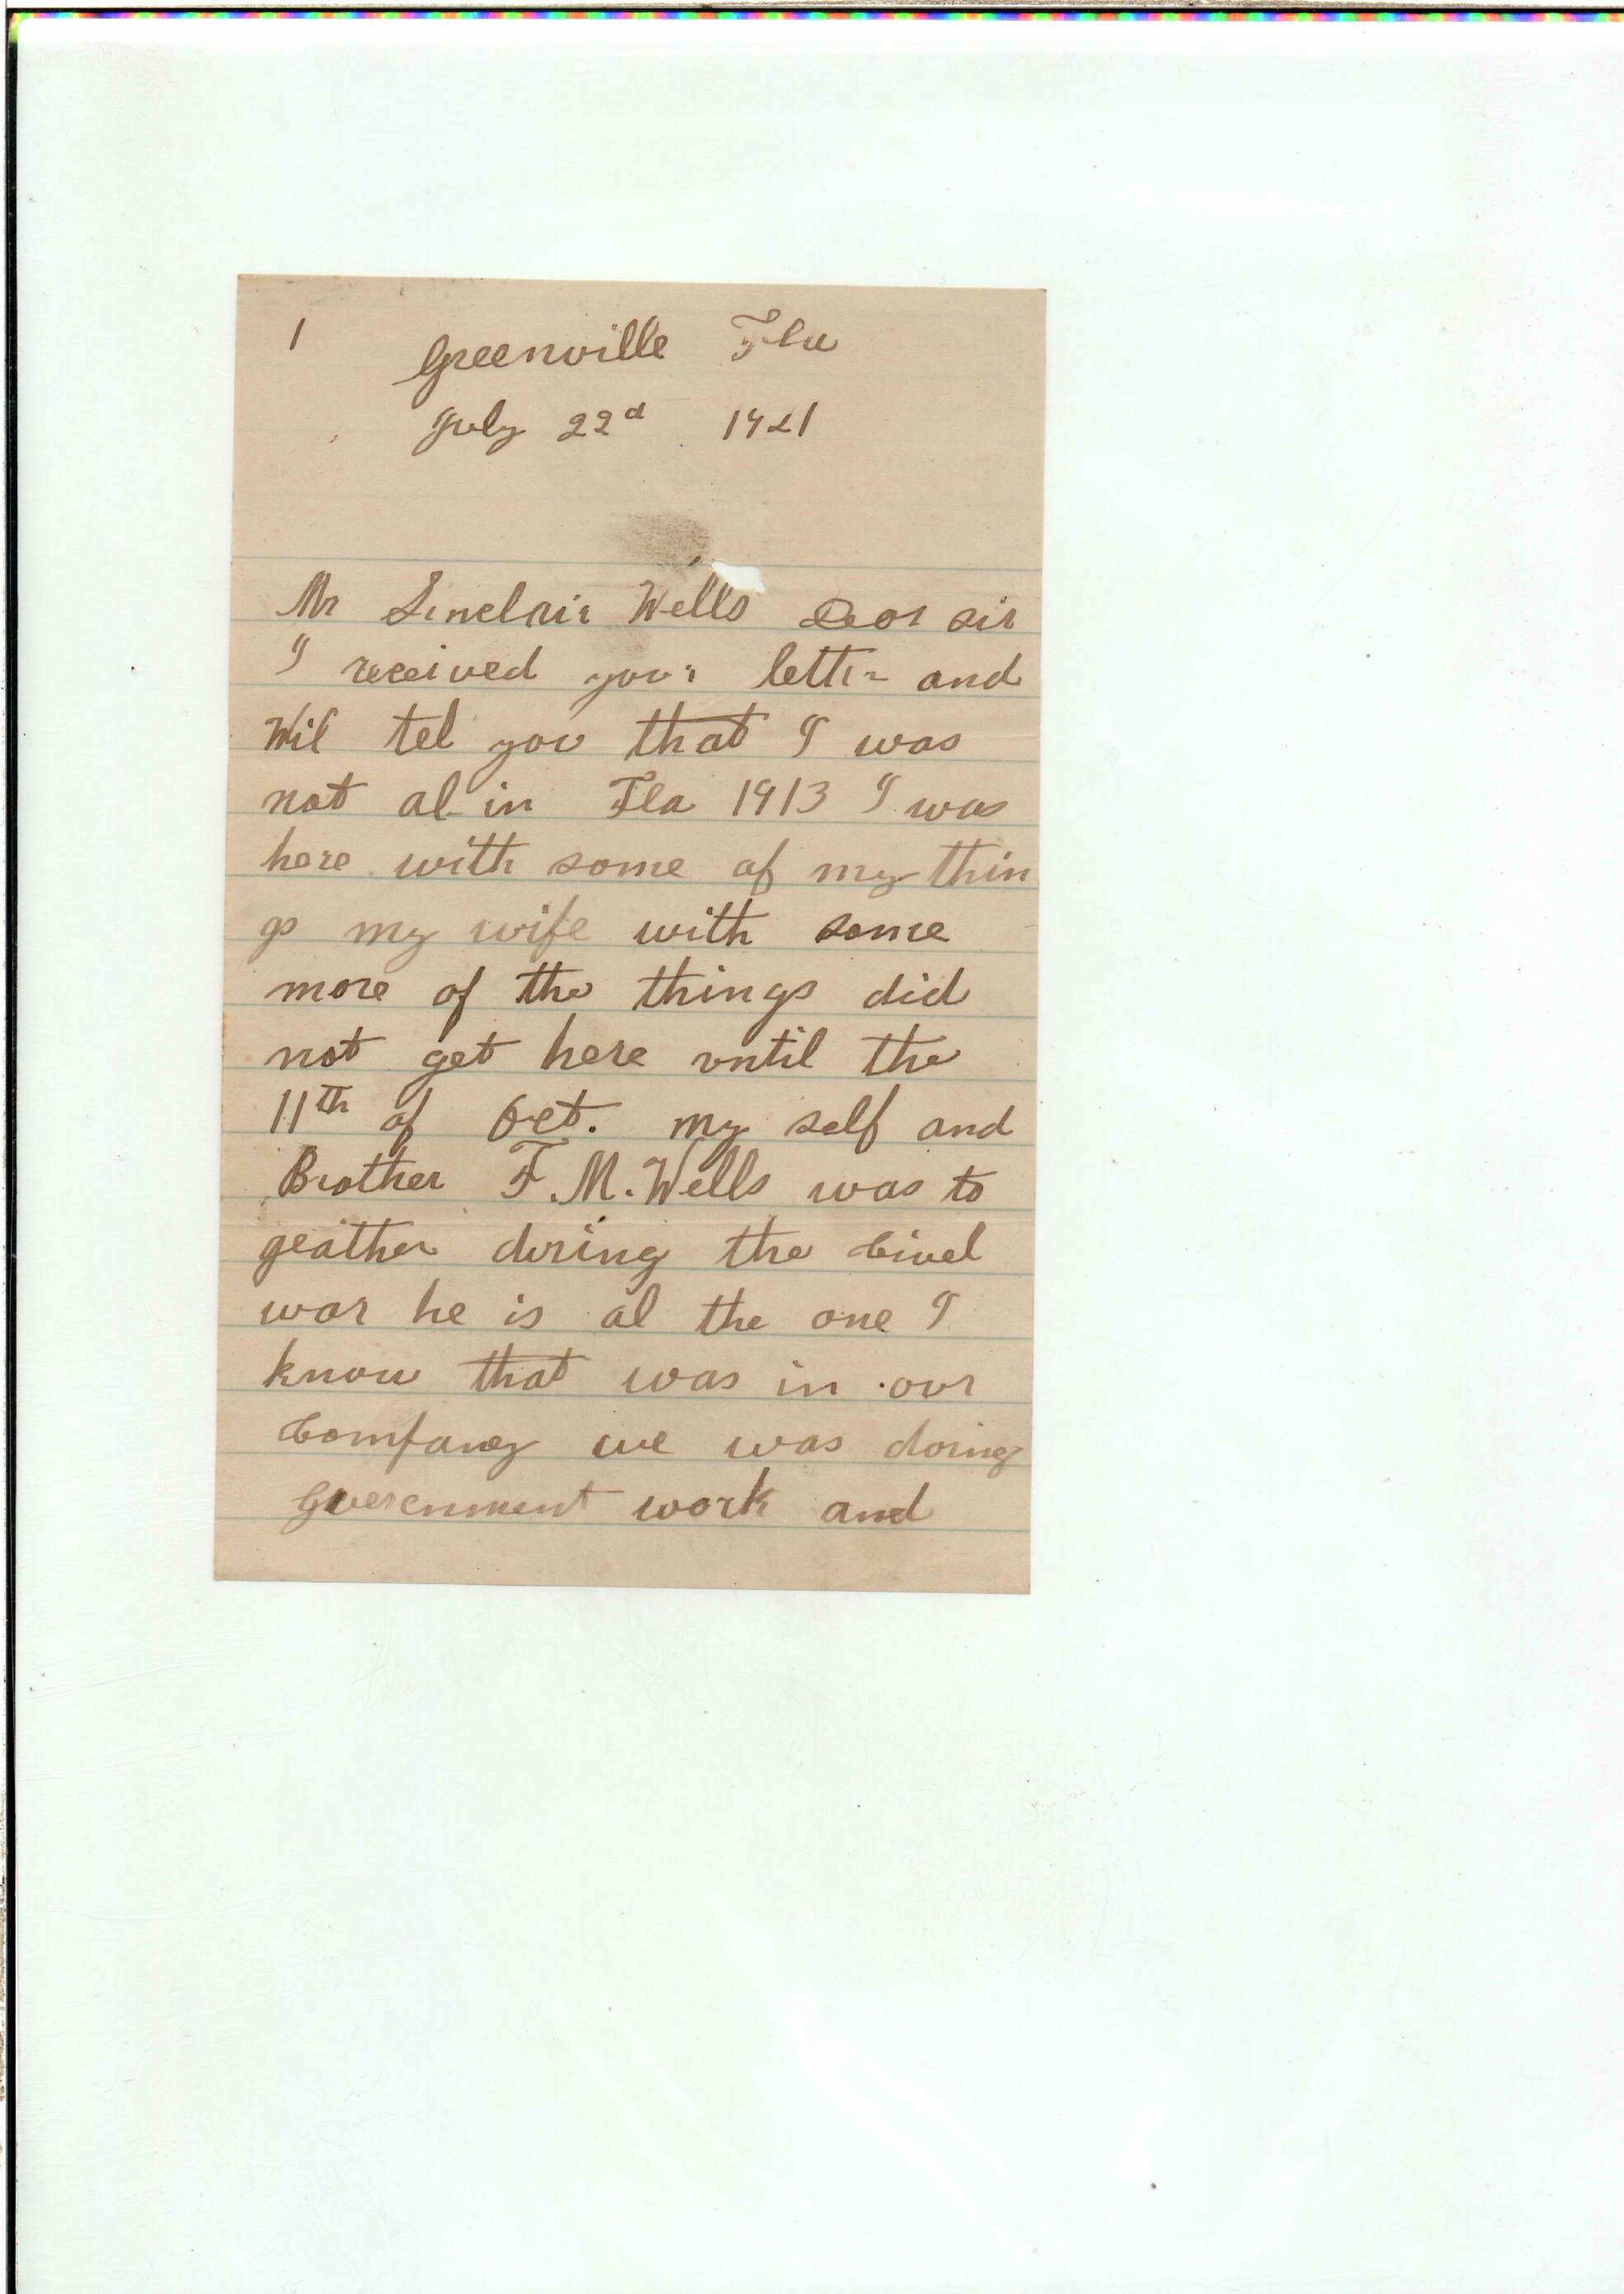 1
Greenville Fla
July 22d 1921
Mr Sinclair Wells Dear sir
I received your letter and
Wil tel you that I was
not al in Fla 1913 I was
here with some of my thin
gs my wife with some
more of the things did
not get here until the
11th of Oct. my self and
Brother F. M. Wells was to
geather during the Civel
war he is al the one I
know that was in our
Company we was doing
Government work and